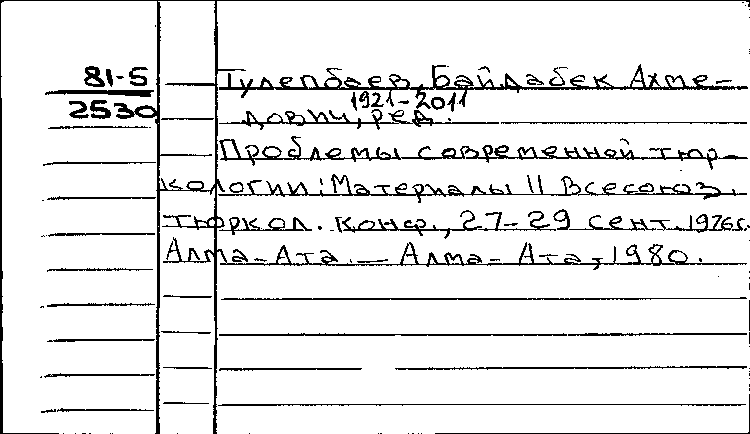 81-5
2530
Тулепбаев, Байдабек Ахме-
1921-2011
дович, ред.
Проблемы современной тюр-
кологии: Материалы II Всесоюз.
тюркол. конф., 27-29 сент. 1976г.
Алма-Ата. — Алма-Ата, 1980.